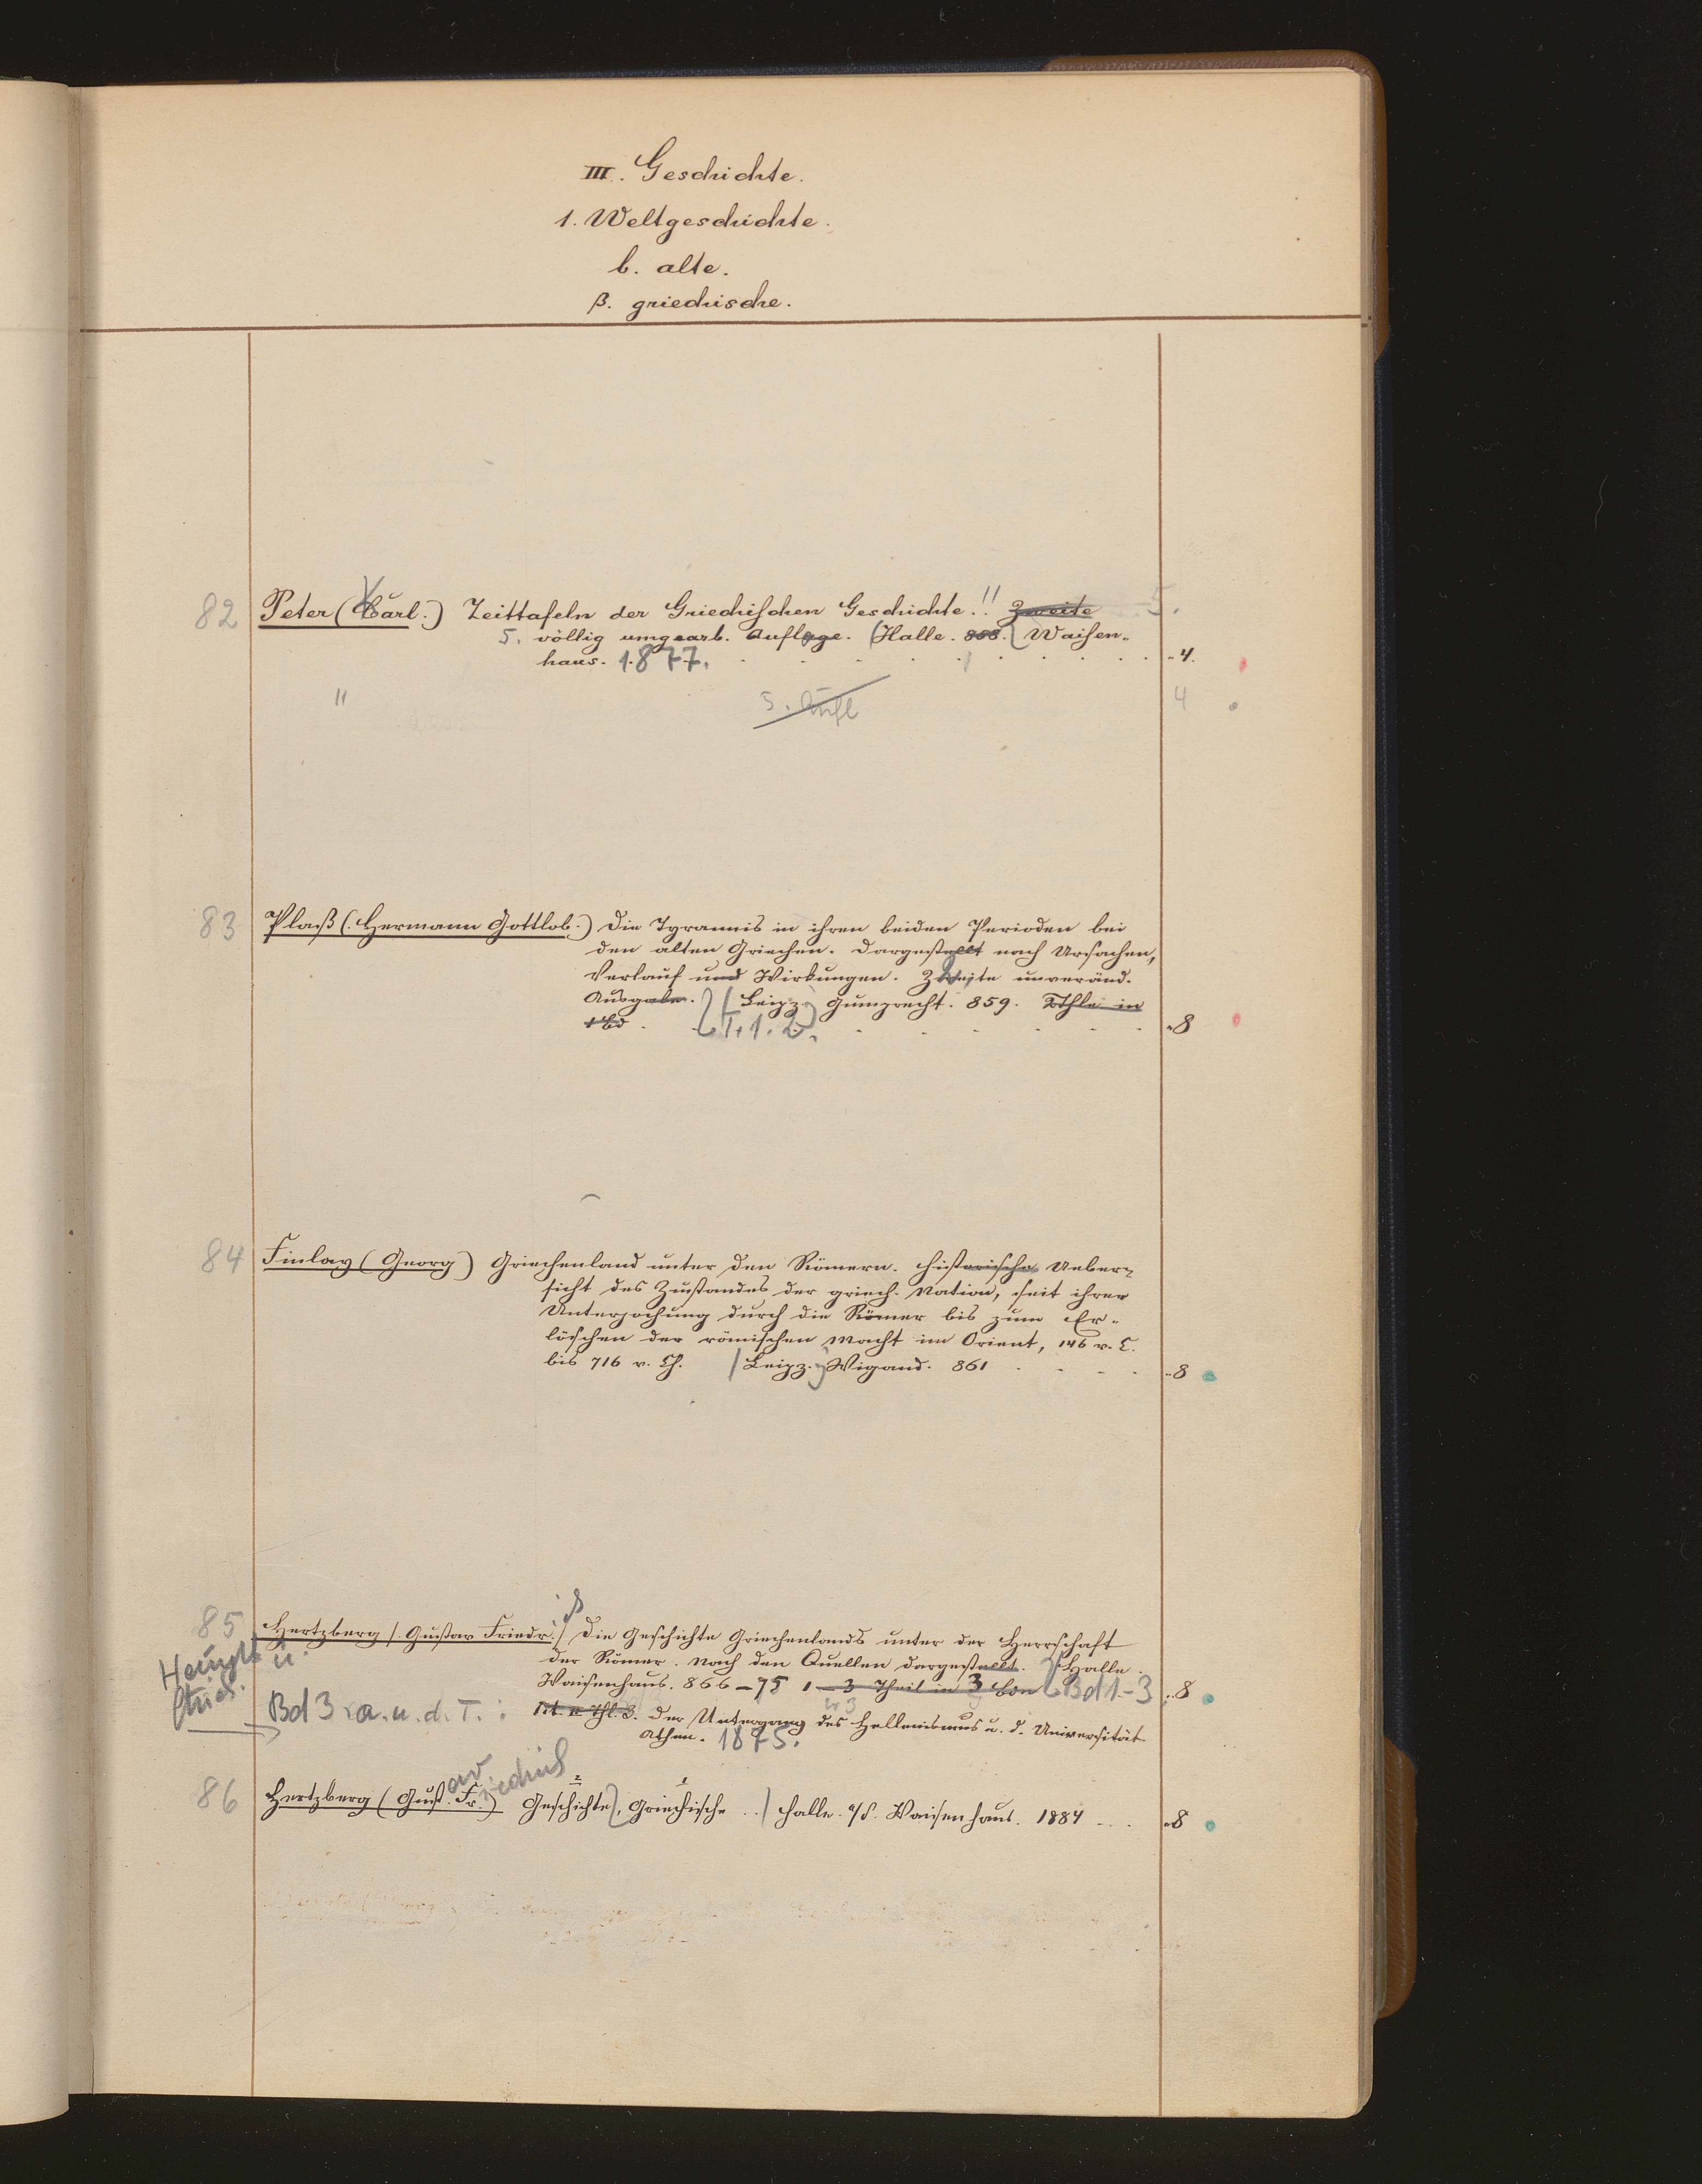 III. Geschichte.
1. Weltgeschichte.
b. alte.
β. griechische.
82 Peter (Carl.) Zeittafeln der Griechischen Geschichte. !! Zweite 5.
5. völlig umgearb. Auflage. (Halle. 858. Waisen-
haus. 1877. 4.
" 5. Aufl 4
83 Plaß (Hermann Gottlob.) Die Tyrannis in ihren beiden Perioden bei
den alten Griechen. Dargestellt nach Ursachen,
Verlauf und Wirkungen. Zweite unveränd.
Ausgabe. (Leipz.) Gumprecht. 859. 2 Thle in
1 Bd T. 1. 2. 8
84 Finlay (Georg) Griechenland unter den Römern. Historische Ueber-
sicht des Zustandes der griech. Nation, seit ihrer
Unterjochung durch die Römer bis zum Er-
löschen der römischen Macht im Orient, 146 v. C.
bis 716 n. Ch. (Leipz.) Wigand. 861 8
85 Hertzberg (Gustav Friedr.) Die Geschichte Griechenlands unter der Herrschaft
Haupt u.
der Römer. Nach den Quellen dargestellt. Halle.
Waisenhaus. 866-75 1-3 Theil in 3 Bdn Bd 1-3 8
Bd 3 a. u. d. T.: Thl. 3. Der Untergang des Hellenismus u. d. Universität
Athen. 1875.
86 Hertzberg (Gustav Fr.) Geschichte, Griechische .. Halle a/S. Waisenhaus. 1884 8